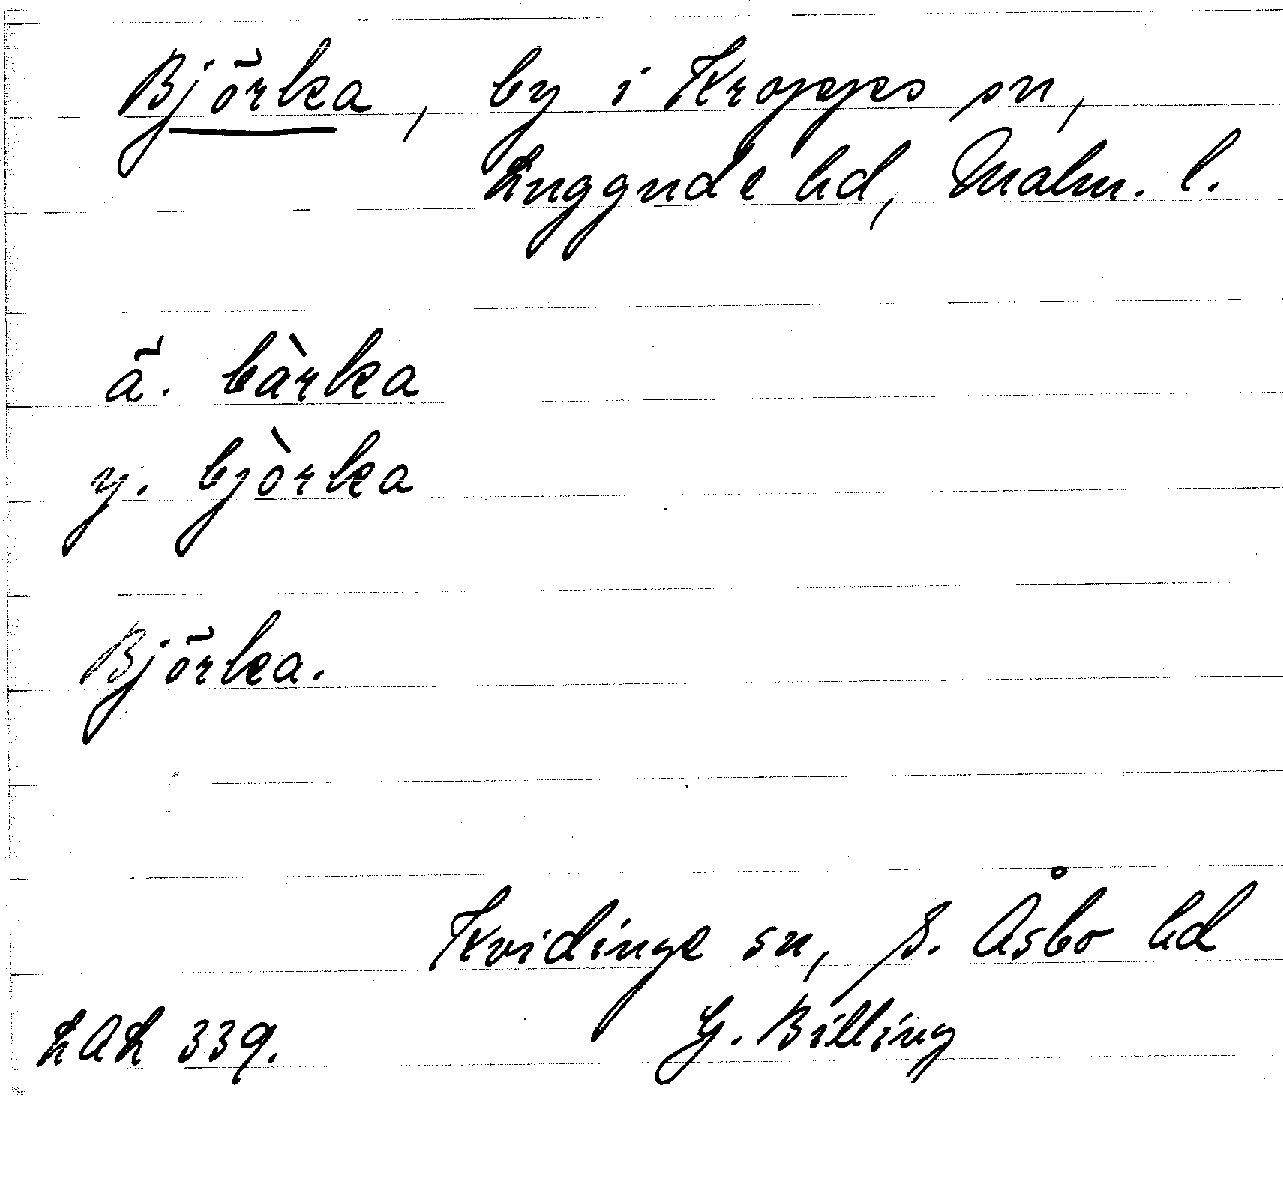 Björka, by i Kropps sn,
Luggude hd, Malm. l.
ä. bàrka
y. bjòrka
Björka.
Kvidinge sn, S. Åsbo hd
LAL 339. G. Billing